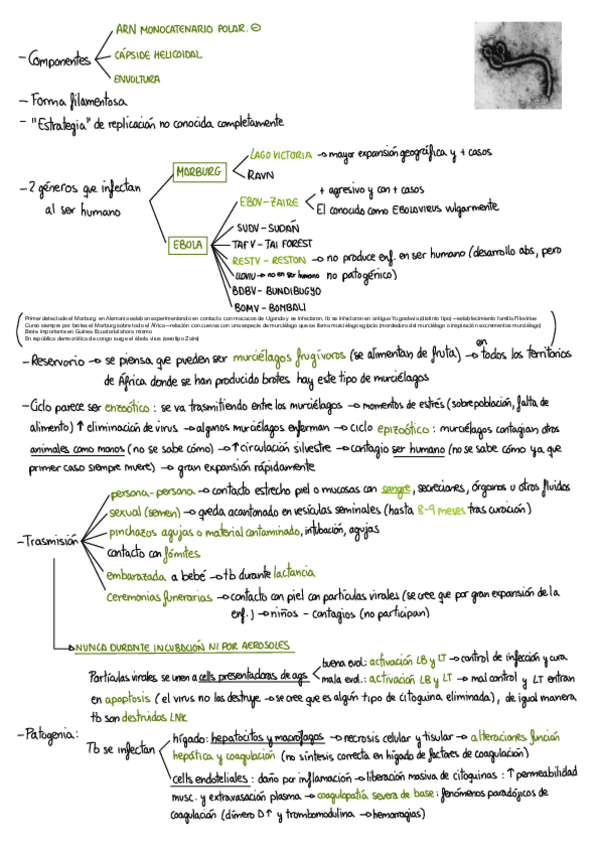 ARN MONOCATENARIO POLAR. ⊖
- Componentes
CÁPSIDE HELICOIDAL
ENVOLTURA
- Forma filamentosa
- "Estrategia" de replicación no conocida completamente
LAGO VICTORIA → mayor expansión geográfica y + casos
MARBURG
RAVN
- 2 géneros que infectan
al ser humano
EBOV - ZAIRE
+ agresivo y con + casos
El conocido como EBOLAVIRUS vulgarmente
SUDV - SUDÁN
EBOLA
TAFV - TAI FOREST
RESTV - RESTON → no produce enf. en ser humano (desarrollo abs, pero
LLOVIU → no en ser humano no patogénico)
BDBV - BUNDIBUGYO
BOMV - BOMBALI
Primer detectado el Marburg: en Alemania estaban experimentando en contacto con macacos de Uganda y se infectaron, tb se infectaron en antigua Yugoslavia (distinto tipo) → establecimiento familia Filoviridae
Curso siempre por brotes el Marburg sobre todo el África → relación con cuevas con una especie de murciélago que se llama murciélago egipcio (mordedura del murciélago o inspiración excrementos murciélago)
Brote importante en Guinea Ecuatorial ahora mismo
En república democrática de congo surge el ébola virus (ese tipo Zaire)
- Reservorio → se piensa que pueden ser murciélagos frugívoros (se alimentan de fruta) → en todos los territorios
de África donde se han producido brotes hay este tipo de murciélagos
- Ciclo parece ser enzoótico: se va trasmitiendo entre los murciélagos → momentos de estrés (sobrepoblación, falta de
alimento) ↑ eliminación de virus → algunos murciélagos enferman → ciclo epizoótico: murciélagos contagian otros
animales como monos (no se sabe cómo) → ↑ circulación silvestre → contagio ser humano (no se sabe cómo ya que
primer caso siempre muere) → gran expansión rápidamente
persona-persona → contacto estrecho piel o mucosas con sangre, secreciones, órganos u otros fluidos
sexual (semen) → queda acantonado en vesículas seminales (hasta 8-9 meses tras curación)
pinchazos agujas o material contaminado, intubación, agujas
- Trasmisión
contacto con fómites
embarazada a bebé → tb durante lactancia
ceremonias funerarias → contacto con piel con partículas virales (se cree que por gran expansión de la
enf.) → niños - contagios (no participan)
NUNCA DURANTE INCUBACIÓN NI POR AEROSOLES
buena evol: activación LB y LT → control de infección y cura
Partículas virales se unen a cells presentadoras de ags
mala evol.: activación LB y LT → mal control y LT entran
en apoptosis (el virus no las destruye → se cree que es algún tipo de citoquina eliminada), de igual manera
tb son destruidos LNK
- Patogenia:
hígado: hepatocitos y macrófagos → necrosis celular y tisular → alteraciones función
Tb se infectan
hepática y coagulación (no síntesis correcta en hígado de factores de coagulación)
cells endoteliales: daño por inflamación → liberación masiva de citoquinas: ↑ permeabilidad
musc. y extravasación plasma → coagulopatía severa de base: fenómenos paradójicos de
coagulación (dímero D↑ y trombomodulina → hemorragias)